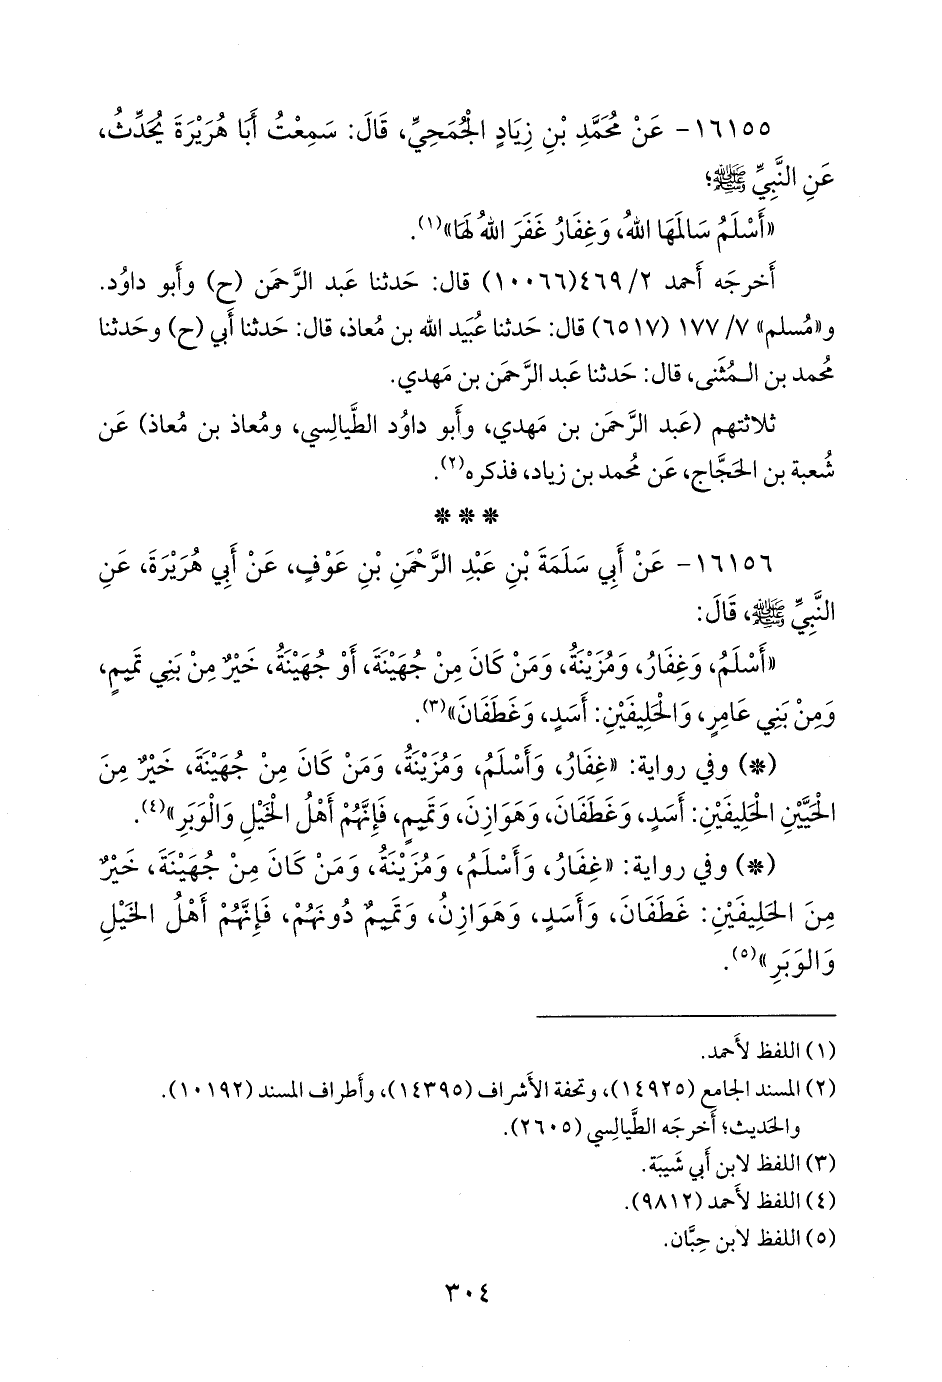 ١٦١٥٥- عَنْ مُحَمَّدِ بْنِ زِيَادٍ الْجُمَحِيِّ، قَالَ: سَمِعْتُ أَبَا هُرَيْرَةَ يُحَدِّثُ،
عَنِ النَّبِيِّ ﷺ؛
«أَسْلَمُ سَالَمَهَا اللهُ، وَغِفَارُ غَفَرَ اللهُ لَهَا»(١).
أَخرجَه أَحمد ٢/ ٤٦٩(١٠٠٦٦) قال: حَدثنا عَبد الرَّحمَن (ح) وأَبو داوُد.
و«مُسلم» ٧/ ١٧٧ (٦٥١٧) قال: حَدثنا عُبَيد الله بن مُعاذ، قال: حَدثنا أَبي (ح) وحَدثنا
مُحمد بن الـمُثَنى، قال: حَدثنا عَبد الرَّحمَن بن مَهدي.
ثلاثتهم (عَبد الرَّحمَن بن مَهدي، وأَبو داوُد الطَّيالِسي، ومُعاذ بن مُعاذ) عَن
شُعبة بن الحَجَّاج، عَن مُحمد بن زياد، فذكره(٢).
* * *
١٦١٥٦- عَنْ أَبِي سَلَمَةَ بْنِ عَبْدِ الرَّحْمَنِ بْنِ عَوْفٍ، عَنْ أَبِي هُرَيْرَةَ، عَنِ
النَّبِيِّ ﷺ، قَالَ:
«أَسْلَمُ، وَغِفَارُ، وَمُزَيْنَةُ، وَمَنْ كَانَ مِنْ جُهَيْنَةَ، أَوْ جُهَيْنَةُ، خَيْرٌ مِنْ بَنِي تَمِيمٍ،
وَمِنْ بَنِي عَامِرٍ، وَالْحَلِيفَيْنِ: أَسَدٍ، وَغَطَفَانَ»(٣).
(*) وفي رواية: «غِفَارُ، وَأَسْلَمُ، وَمُزَيْنَةُ، وَمَنْ كَانَ مِنْ جُهَيْنَةَ، خَيْرٌ مِنَ
الْحَيَّيْنِ الْحَلِيفَيْنِ: أَسَدٍ، وَغَطَفَانَ، وَهَوَازِنَ، وَتَمِيمٍ، فَإِنَّهُمْ أَهْلُ الْخَيْلِ وَالْوَبَرِ»(٤).
(*) وفي رواية: «غِفَارُ، وَأَسْلَمُ، وَمُزَيْنَةُ، وَمَنْ كَانَ مِنْ جُهَيْنَةَ، خَيْرٌ
مِنَ الْحَلِيفَيْنِ: غَطَفَانَ، وَأَسَدٍ، وَهَوَازِنُ، وَتَمِيمٌ دُونَهُمْ، فَإِنَّهُمْ أَهْلُ الْخَيْلِ
وَالْوَبَرِ»(٥).
(١) اللفظ لأَحمد.
(٢) المسند الجامع (١٤٩٢٥)، وتحفة الأَشراف (١٤٣٩٥)، وأَطراف المسند (١٠١٩٢).
والحَديث؛ أَخرجَه الطَّيالِسي (٢٦٠٥).
(٣) اللفظ لابن أَبي شَيبَة.
(٤) اللفظ لأَحمد (٩٨١٢).
(٥) اللفظ لابن حِبَّان.
٣٠٤